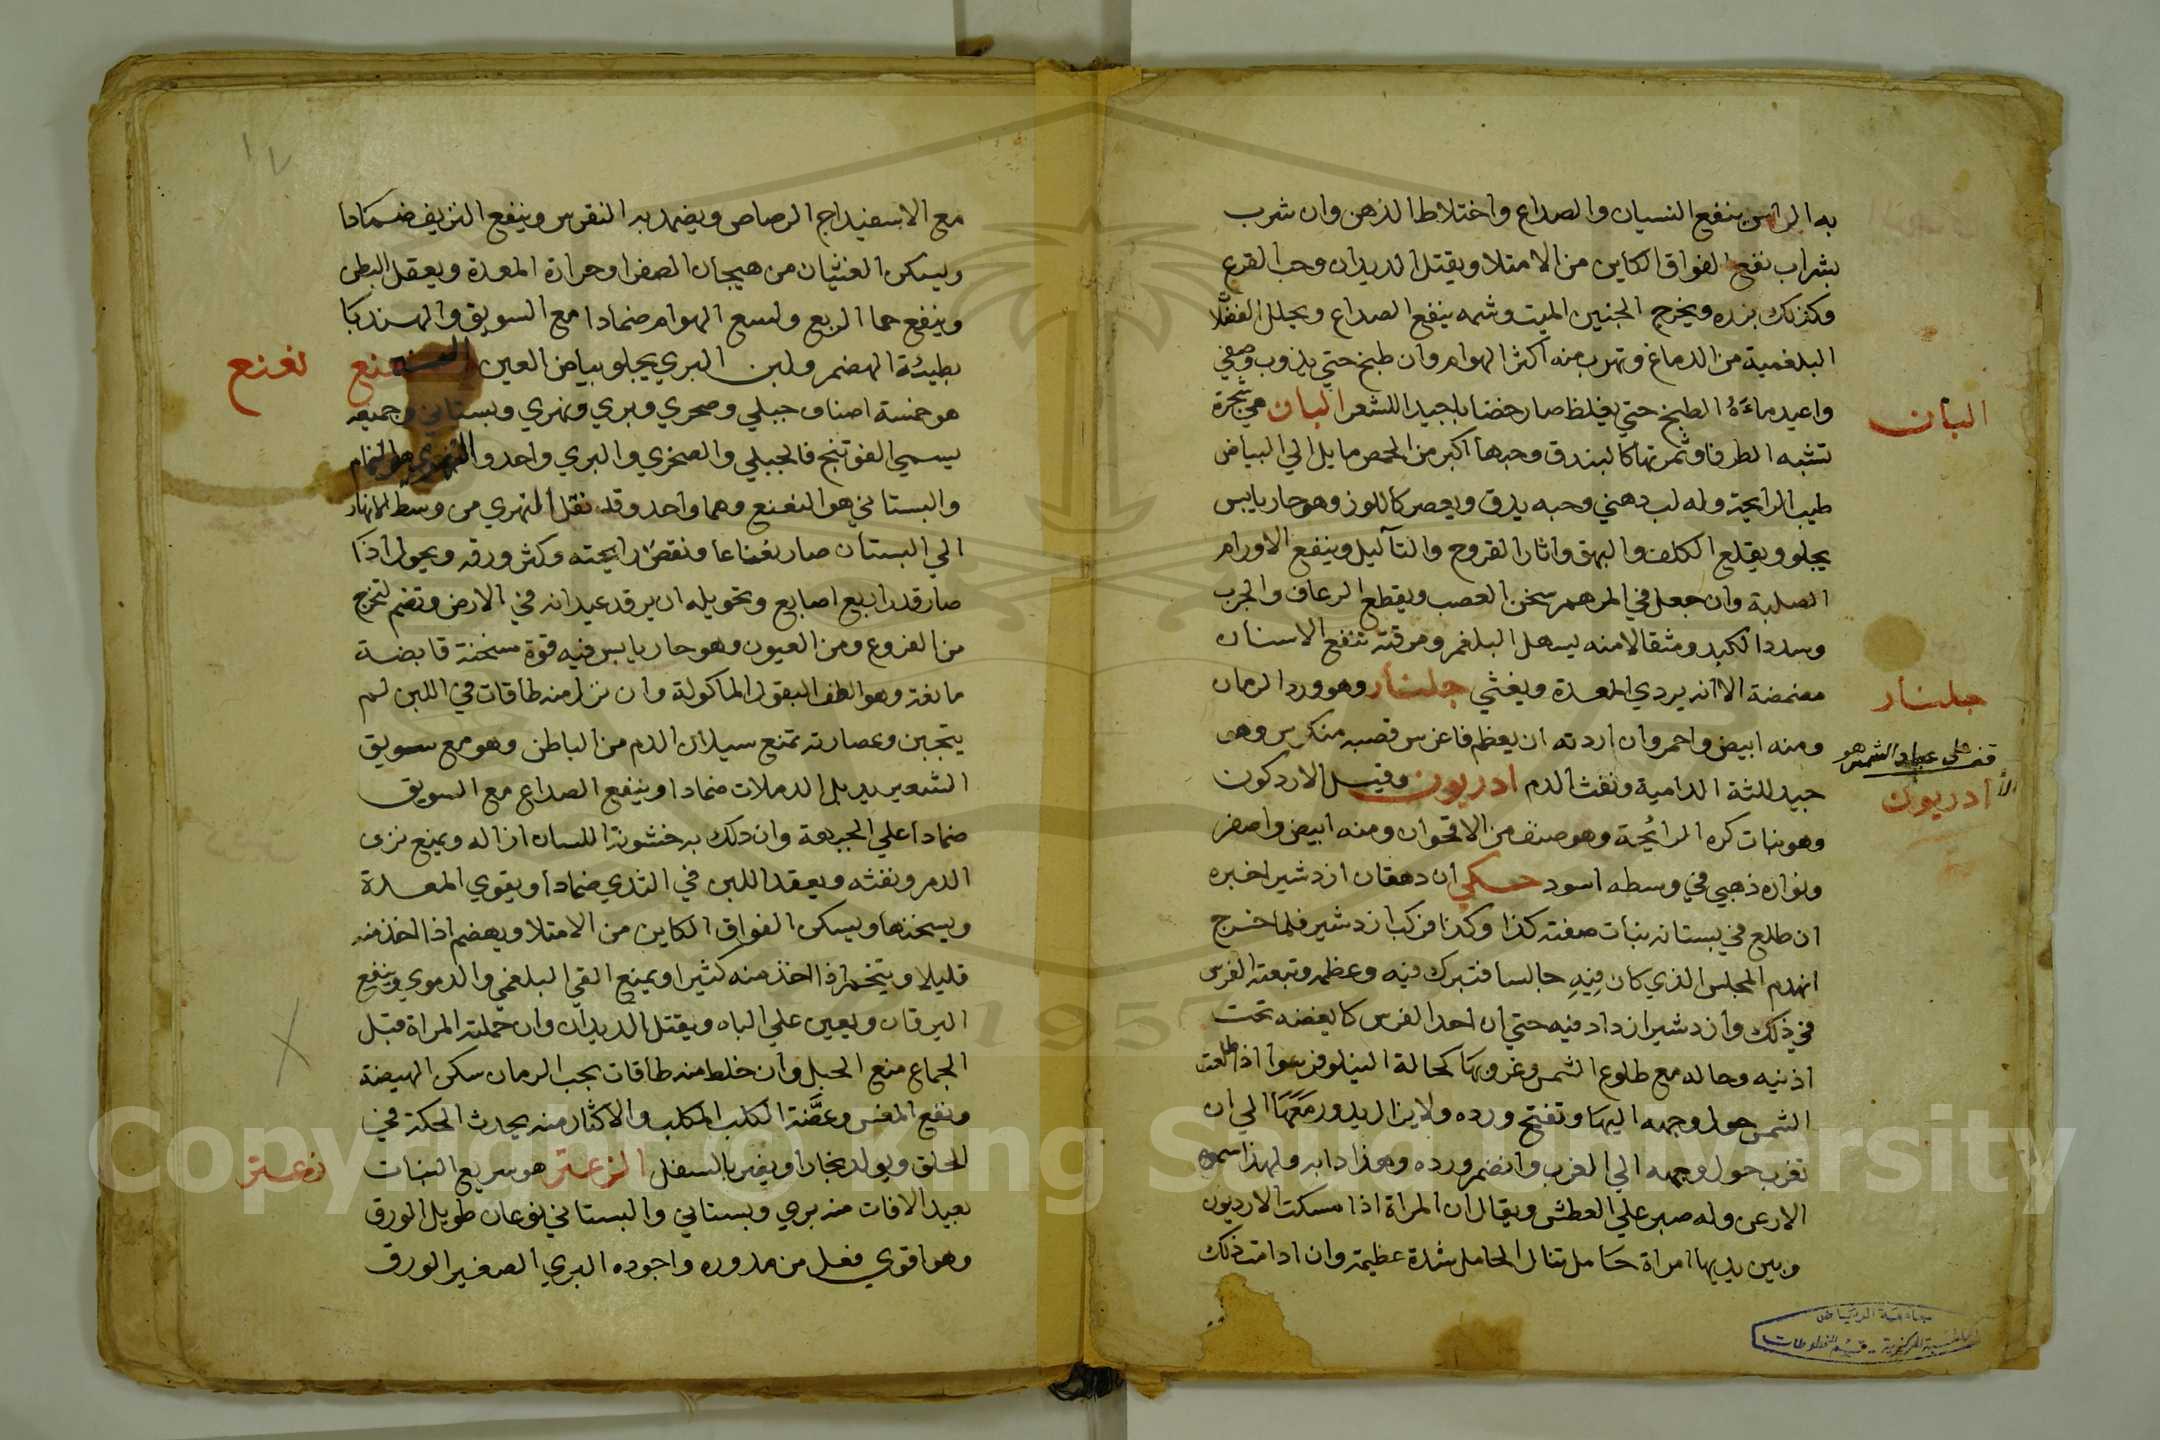 به الراس ينفع النسيان والصداع واختلاط الذهن وان شرب
بشراب نفع الفواق الكاين من الامتلا ويقتل الديدان وحب القرع
وكذلك بزره ويخرج الجنين الميت وشمه ينفع الصداع ويحلل الفضلا
البلغمية من الدماغ وتهرب منه اكثر الهوام وان طبخ حتي يذوب وصفي
واعيد ماءه الطبخ حتي يغلظ صار خضابا جيدا للشعر البان هي شجرة
البان
تشبه الطرفا وثمرتها كالبندق وحبها اكبر من الحمص مايل الي البياض
طيب الرايحة وله لب دهني وحبه يدق ويعصر كاللوز وهو حار يابس
يجلو ويقلع الكلف والبهق واثار القروح والتآليل وينفع الاورام
الصلبة وان جعل في المرهم سخن العصب ويقطع الرعاف والجرب
وسدد الكبد ومثقالا منه يسهل البلغم ومرقته تنفع الاسنان
مضمضة الا انه يردي المعدة ويغثي جلنار وهو ورد الرمان
جلنار
ومنه ابيض واحمر وان اردته ان يعظم فاغرس قصبه منكرس وهو
جيد للثة الدامية ونفث الدم ادريون وقيل الاردكون
الأ ادريون
وهو نبات كره الرائحة وهو صنف من الاقحوان ومنه ابيض واصفر
ونواره ذهبي في وسطه اسود حكي ان دهقان ازدشير اخبره
ان طلع في بستانه نبات صفته كذا وكذا فركب ازدشير فلما خرج
انهدم المجلس الذي كان فيه جالسا فتبرك فيه وعظمه وتبعته الفرس
في ذلك وازدشير ازداد فيه حتي ان احد الفرس كا يغضه تحت
اذنيه وحاله مع طلوع الشمس وغروبها كحالة النيلوفر سوا اذا طلعت
الشمس حول وجهه اليها وتفتح ورده ولايزال يدور معها الي ان
تغرب حول وجهه الي الغرب وانضم ورده وهذا دابه ولهذا سموه
وله صبر علي العطش ويقال ان المراة اذا مسكت الاردبون
وبين يديها امراة حامل تنال الحامل شدة عظيمة وان ادامت ذلك
جامعة الرياض
المكتبة المركزية - قسم المخطوطات
١٧
مع الاسفيداج الرصاص ويضمد به النقرس وينفع النزيف ضمادا
ويسكن الغثيان من هيجان الصفرا وحرارة المعدة ويعقل البطن
وينفع حما الربع ولسع الهوام ضمادا مع السويق والهندبا
بطيئة الهضم ولبن البري يجلو بياض العين النعنع
نعنع
هو خمسة اصناف جبلي وصخري وبري ونهري وبستاني وجميعه
يسمي الفوتنج فالجبلي والصخري والبري واحد والنهري هو النمام
والبستاني هو النعنع وهما واحد وقد نقل النهري من وسط الانهار
الي البستان صار نعناعا ونقص رايحته وكثر ورقه ويحول اذا
صار قدر اربع اصابع وتحويله ان يرقد عيدانه في الارض وتضم لتخرج
من الفروع ومن العيون وهو حار يابس فيه قوة مسخنة قابضة
مانعة وهو الطف البقول الماكولة وان نزل منه طاقات في اللبن لم
يتجبن وعصارته تمنع سيلان الدم من الباطن وهو مع سويق
الشعير يدبل الدملات ضمادا وينفع الصداع مع السويق
ضمادا علي الجبهة وان دلك به خشونة اللسان ازاله ويمنع نزف
الدم ونفثه ويعقد اللبن في الثدي ضمادا ويقوي المعدة
ويسخنها ويسكن الفواق الكاين من الامتلا ويهضم اذا اخذ منه
قليلا ويتخم اذا اخذ منه كثيرا ويمنع القي البلغمي والدموي وينفع
اليرقان ويعين علي الباه ويقتل الديدان وان حملته المراة قبل
الجماع منع الحبل وان خلط منه طاقات بحب الرمان سكن الهيضة
ونفع المغس وعضة الكلب المكلب والاكثار منه يحدث الحكة في
الحلق ويولد بخارا ويضر بالسفل الزعتر هو سريع النبات
زعتر
بعيد الافات منه بري وبستاني والبستاني نوعان طويل الورق
وهو اقوي فعل من مدوره واجوده البري الصغير الورق
Copyright © King Saud University
1957